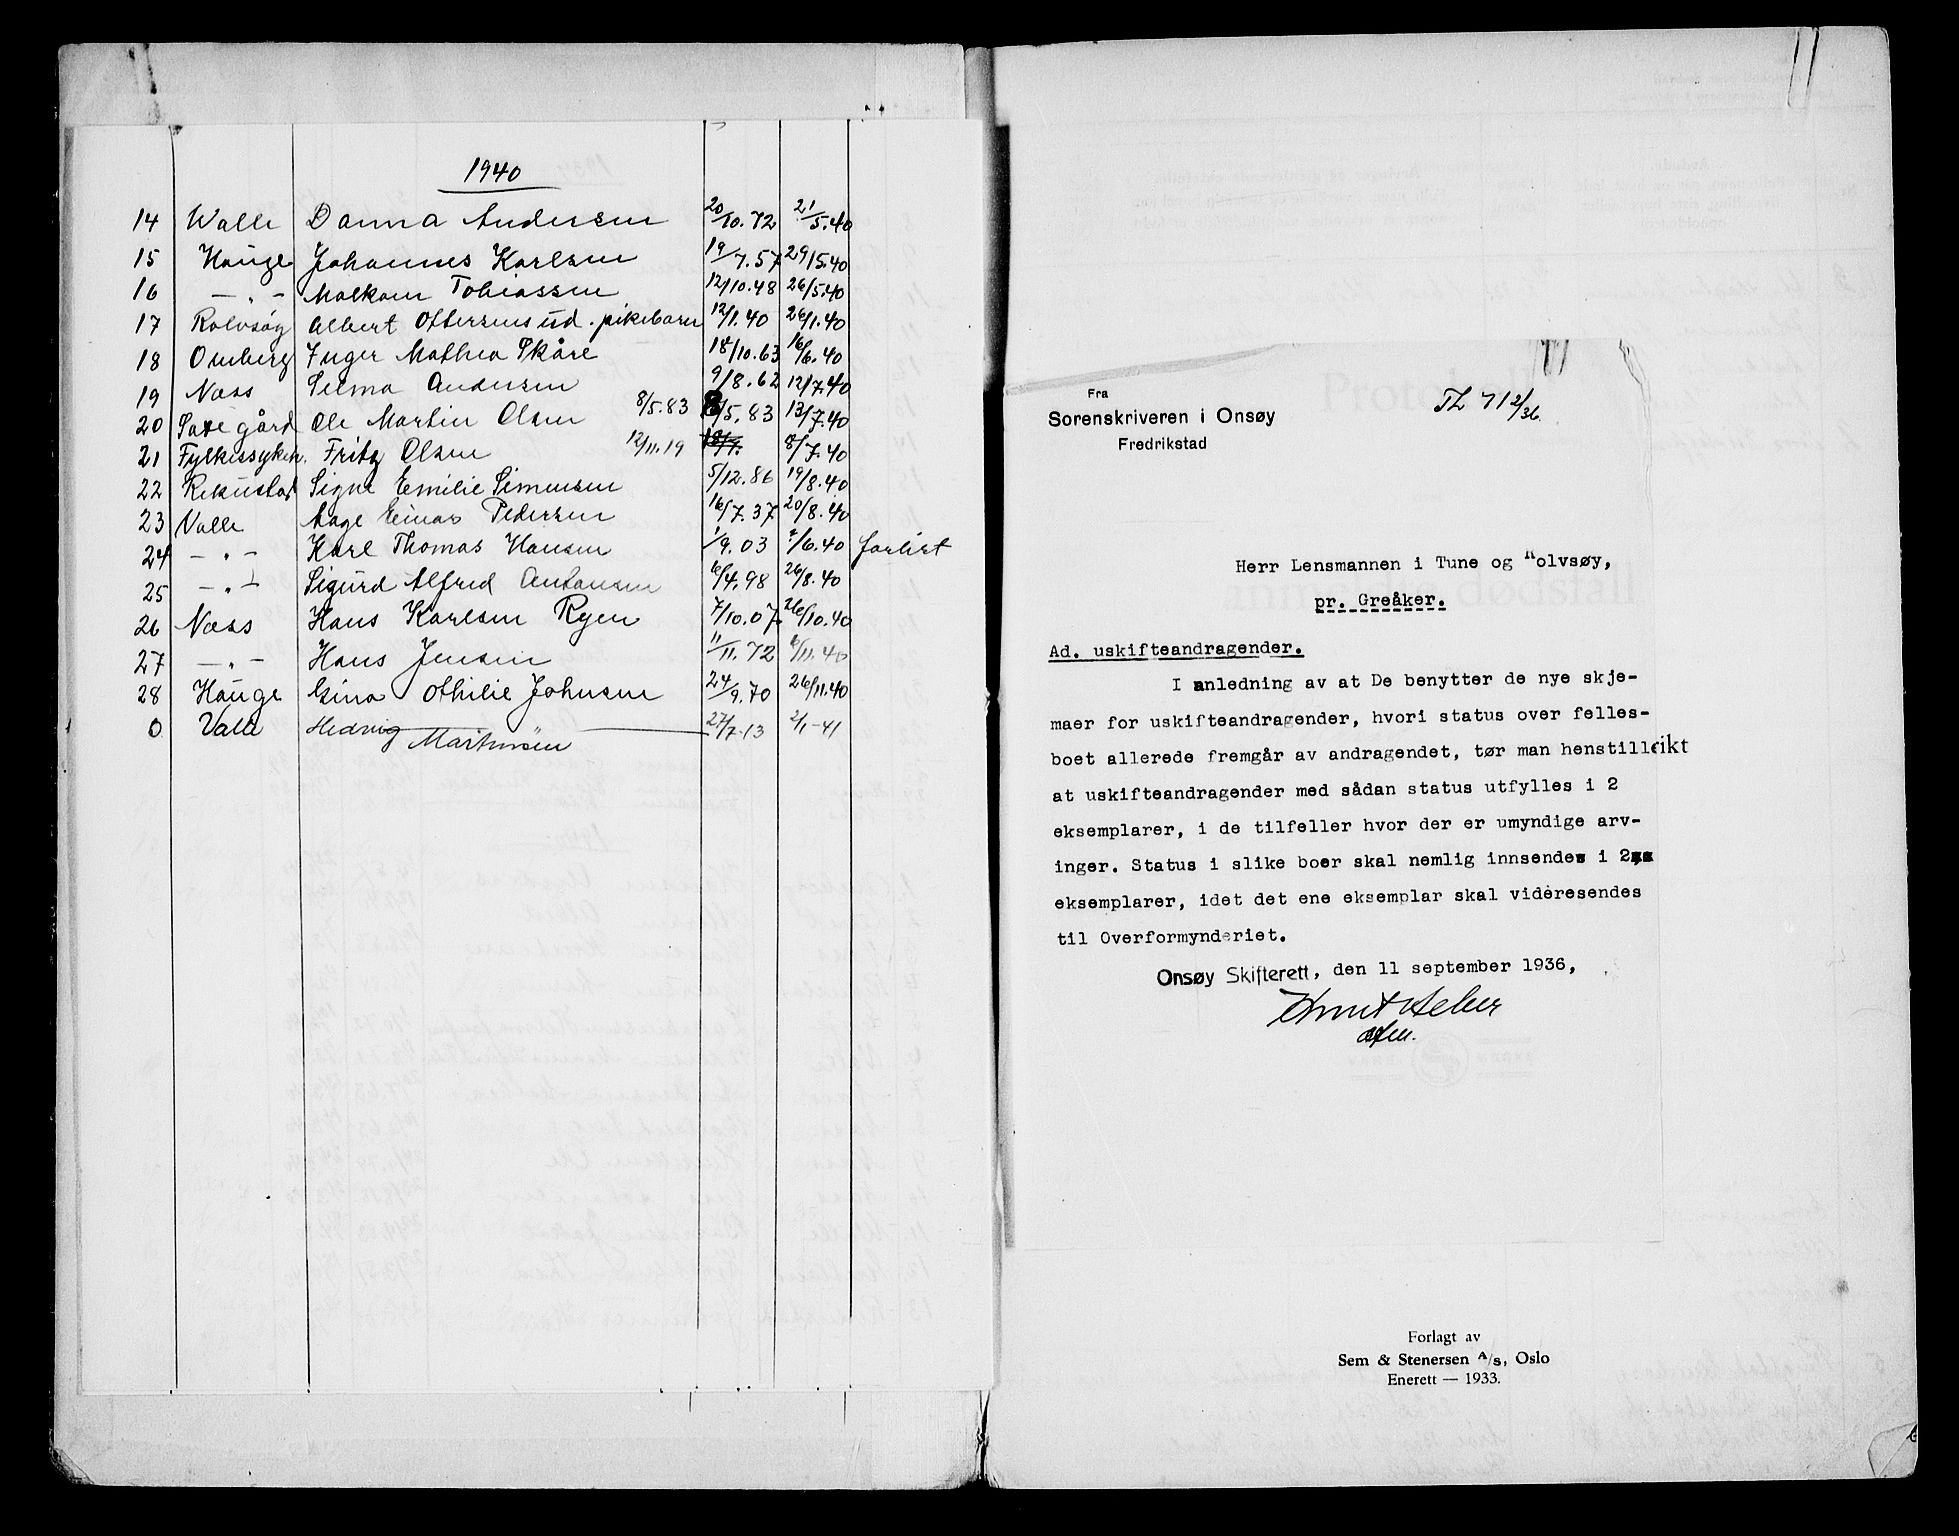 1940
14 Walle Danna Andersen 20/10.72 21/5.40
15 Hauge Johannes Karlsen 19/7.57 29/5.40
16 — " — Malkom Tobiassen 12/10.48 26/5.40
17 Rolvsøy Albert Ottersens ud. pikebarn 12/1.40 26/1.40
18 Omberg Inger Mathea Skåre 18/10.63 16/6.40
19 Næss Selma Andersen 9/8.62 12/7.40
20 gård Ole Martin Olsen 8/5.83 8/5.83 13/7.40
21 Fylkessykeh. Fritz Olsen 12/11.19 8/7.40
22 Rekustad Signe Emilie Simensen 5/12.86 19/8.40
23 Valle Aage Einar Pedersen 16/7.37 20/8.40
24 — " — Karl Thomas Hansen 1/9.03 /6.40 forlist
25 — " — Sigurd Alfred Antonsen 6/4.98 26/8.40
26 Næss Hans Karlsen Ryen 7/10.07 26/10.40
27 — " — Hans Jensen 11/11.72 6/11.40
28 Hauge Gina Othilie Johnsen 24/9.70 26/11.40
0 Valle Hedvig Martinsen 27/7.13 2/1-41
Fra
Sorenskriveren i Onsøy
Fredrikstad
TL 712/36.
Herr Lensmannen i Tune og Rolvsøy,
pr. Greåker.
Ad. uskifteandragender.
I anledning av at De benytter de nye skje-
maer for uskifteandragender, hvori status over felles-
boet allerede fremgår av andragendet, tør man henstille
at uskifteandragender med sådan status utfylles i 2
eksemplarer, i de tilfeller hvor der er umyndige arv-
inger. Status i slike boer skal nemlig innsendes i 2
eksemplarer, idet det ene eksemplar skal videresendes
til Overformynderiet.
Onsøy Skifterett, den 11 september 1936,
Forlagt av
Sem & Stenersen A/s, Oslo
Enerett — 1933.